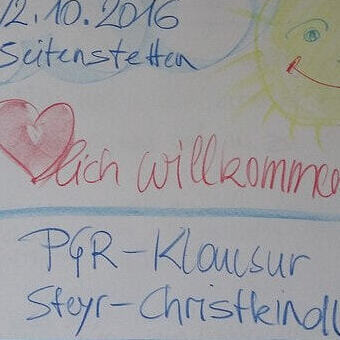 12.10.2016
Seitenstetten
lich willkommen
PGR-Klausur
Steyr-Christkindl